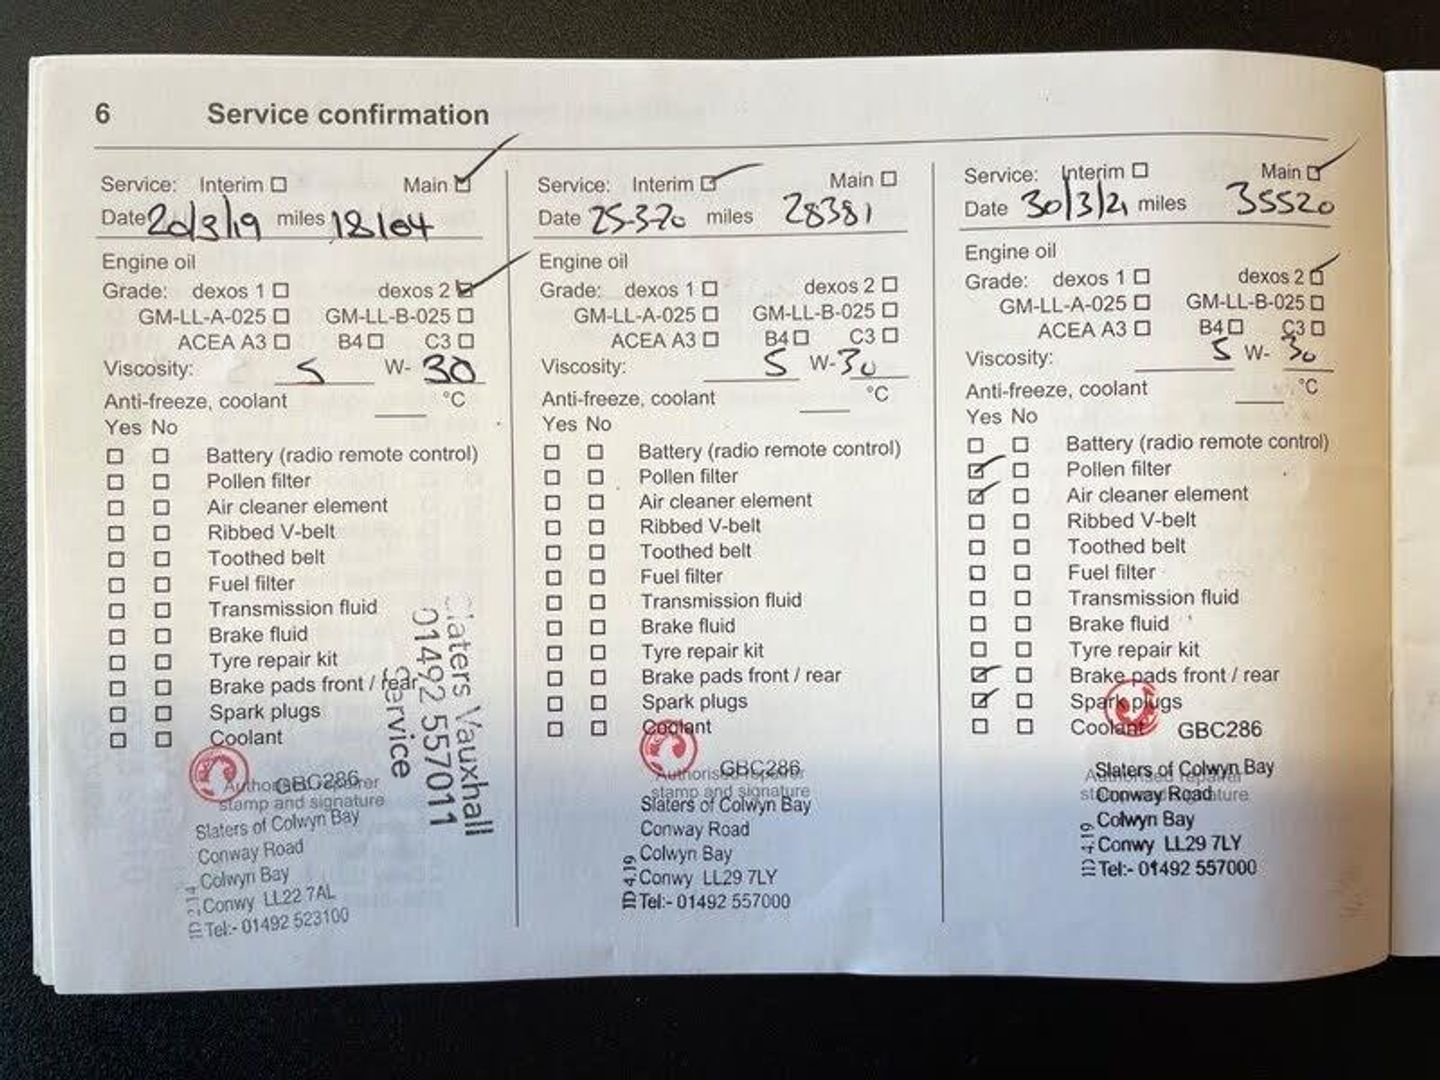 6 Service confirmation
Service: Interim Main
Date 20/3/19 miles 18164
Engine oil
Grade: dexos 1 dexos 2
GM-LL-A-025 GM-LL-B-025
ACEA A3 B4 C3
Viscosity: 5 W- 30
Anti-freeze, coolant °C
Yes No
Battery (radio remote control)
Pollen filter
Air cleaner element
Ribbed V-belt
Toothed belt
Fuel filter
Transmission fluid
Brake fluid
Tyre repair kit
Brake pads front / rear
Spark plugs
Coolant
Slaters Vauxhall
01492 557011
Service
GBC286
Authorised repairer
stamp and signature
Slaters of Colwyn Bay
Conway Road
Colwyn Bay
Conwy LL22 7AL
Tel:- 01492 523100
ID 2.14
Service: Interim Main
Date 25-3-20 miles 28381
Engine oil
Grade: dexos 1 dexos 2
GM-LL-A-025 GM-LL-B-025
ACEA A3 B4 C3
Viscosity: 5 W- 30
Anti-freeze, coolant °C
Yes No
Battery (radio remote control)
Pollen filter
Air cleaner element
Ribbed V-belt
Toothed belt
Fuel filter
Transmission fluid
Brake fluid
Tyre repair kit
Brake pads front / rear
Spark plugs
Coolant
GBC286
Authorised repairer
stamp and signature
Slaters of Colwyn Bay
Conway Road
Colwyn Bay
Conwy LL29 7LY
Tel:- 01492 557000
ID 4.19
Service: Interim Main
Date 30/3/21 miles 35520
Engine oil
Grade: dexos 1 dexos 2
GM-LL-A-025 GM-LL-B-025
ACEA A3 B4 C3
Viscosity: 5 W- 30
Anti-freeze, coolant °C
Yes No
Battery (radio remote control)
Pollen filter
Air cleaner element
Ribbed V-belt
Toothed belt
Fuel filter
Transmission fluid
Brake fluid
Tyre repair kit
Brake pads front / rear
Spark plugs
Coolant
GBC286
Authorised repairer
stamp and signature
Slaters of Colwyn Bay
Conway Road
Colwyn Bay
Conwy LL29 7LY
Tel:- 01492 557000
ID 4.19